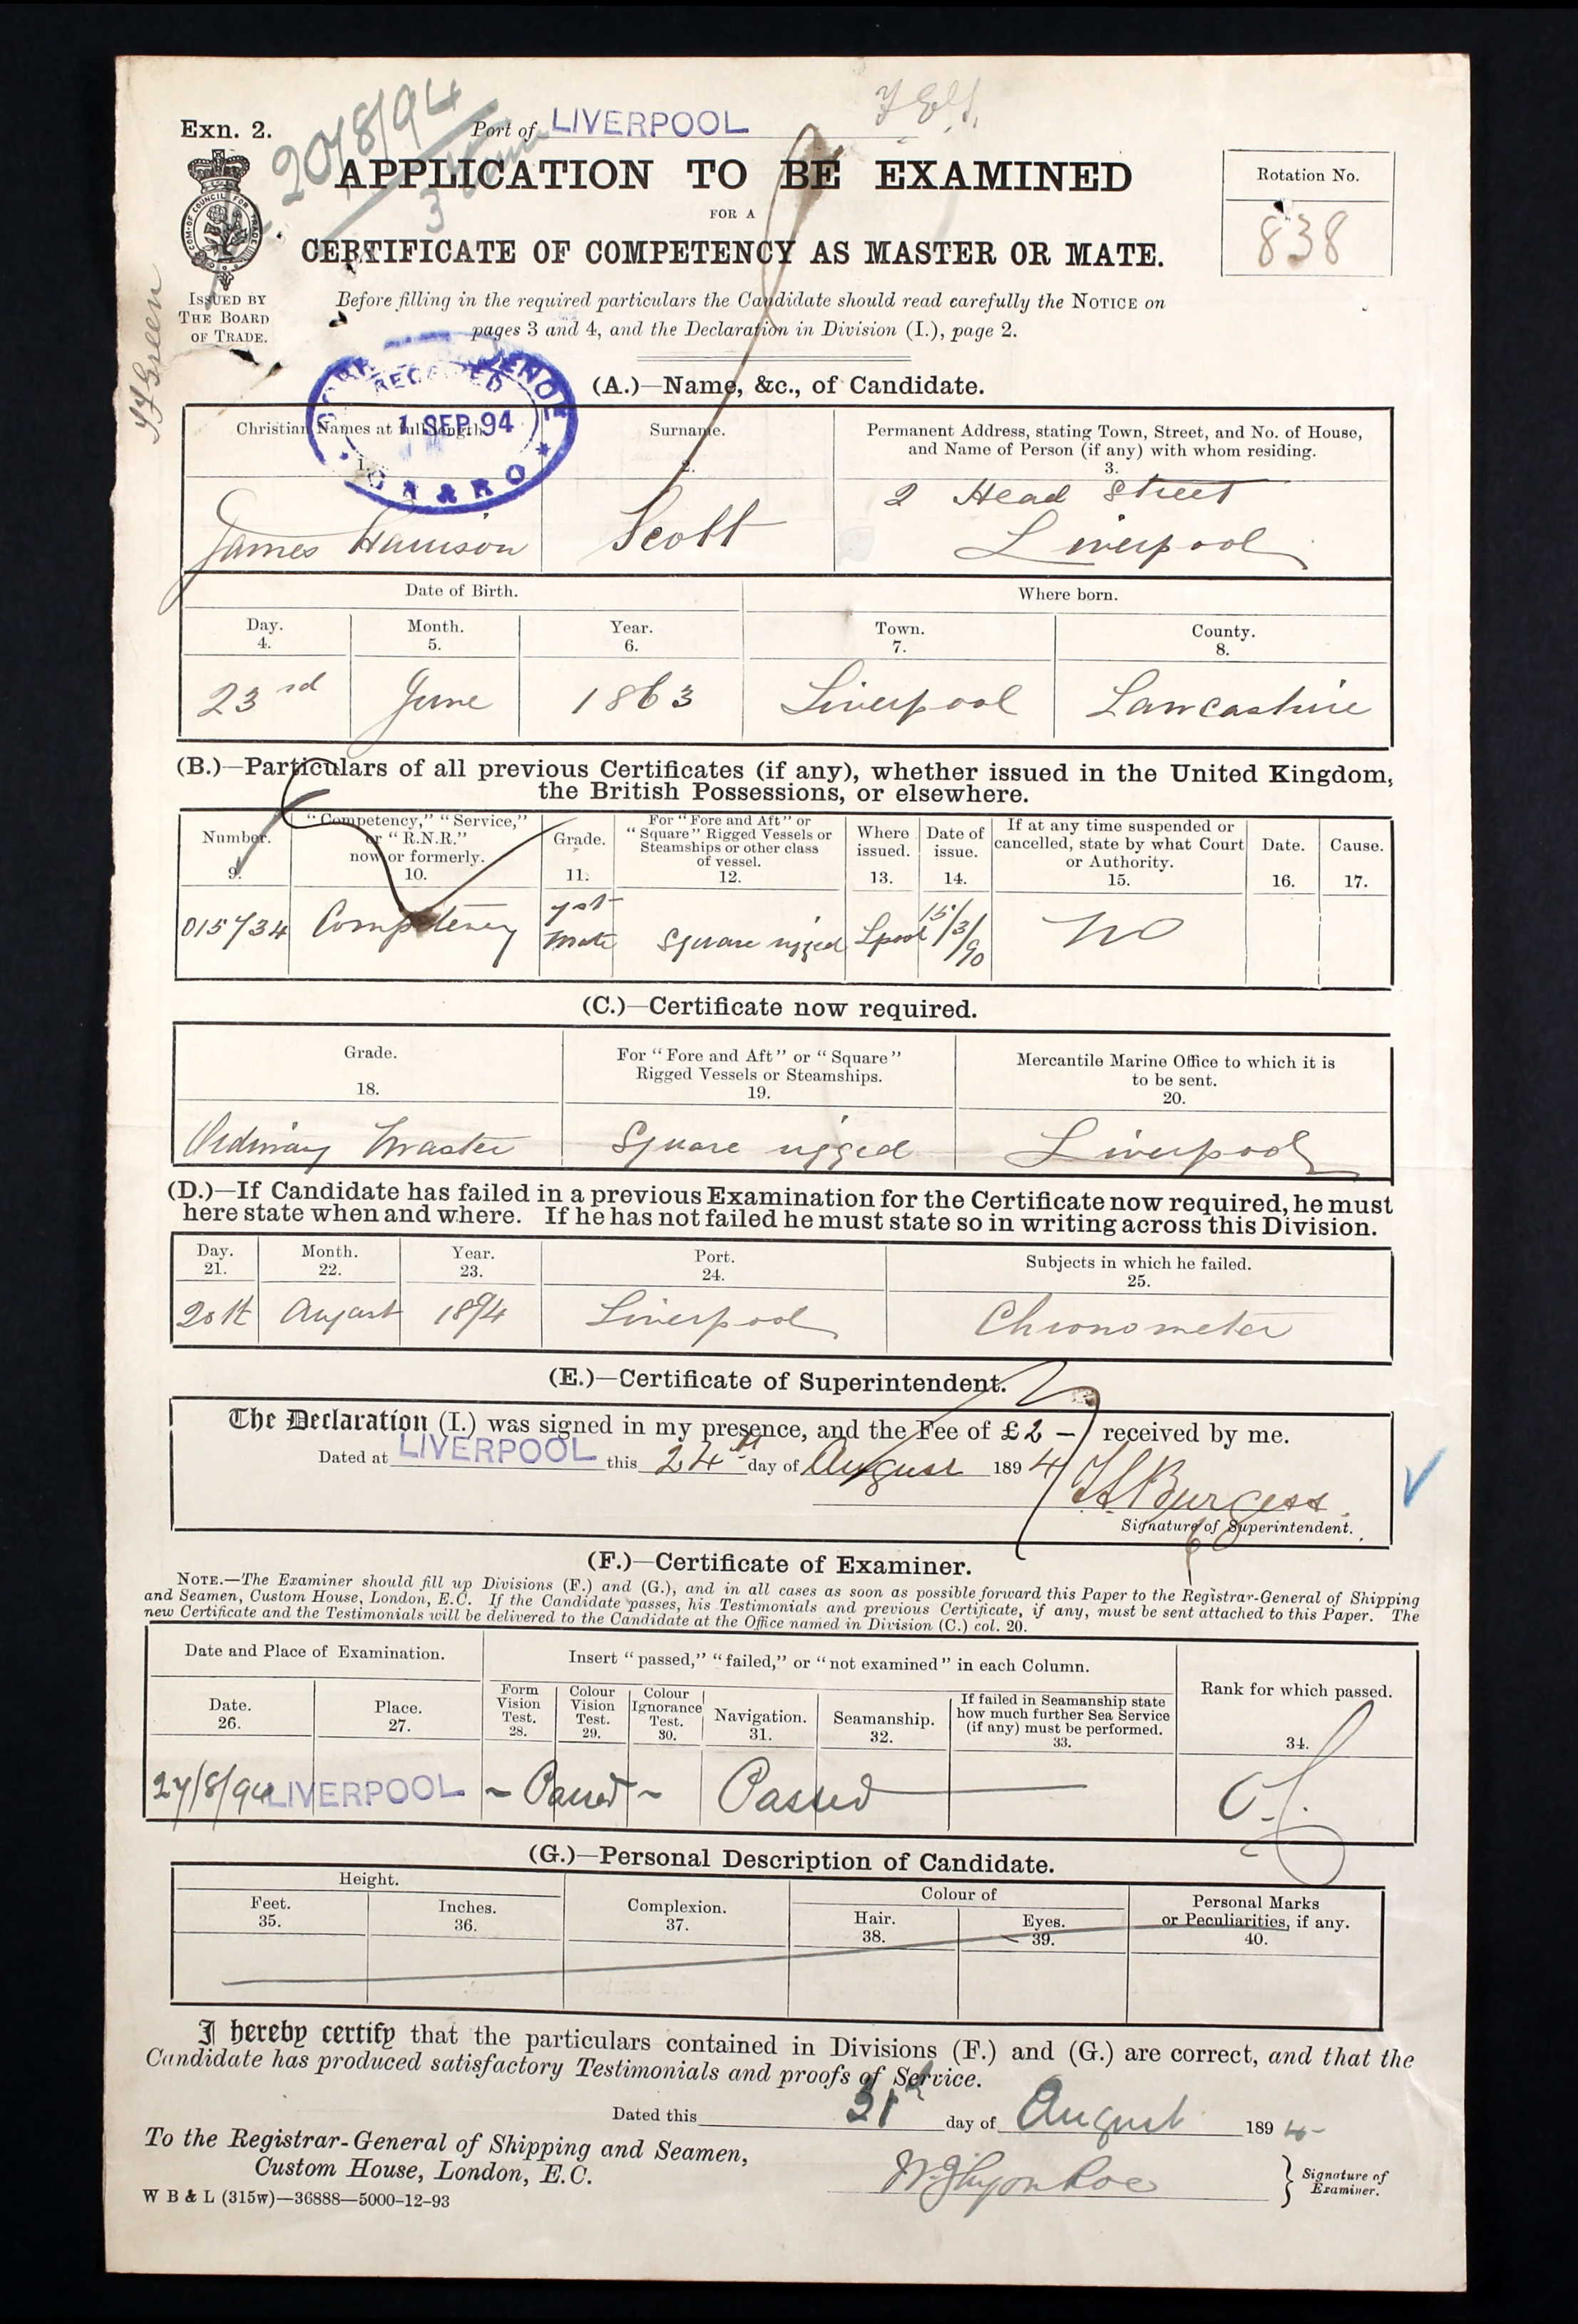 Exn. 2.
20/8/94
Port of LIVERPOOL
APPLICATION TO BE EXAMINED
FOR A
CERTIFICATE OF COMPETENCY AS MASTER OR MATE.
Rotation No.
838
COM. OF COUNCIL FOR TRADE
ISSUED BY
THE BOARD
OF TRADE.
Green
Before filling in the required particulars the Candidate should read carefully the NOTICE on
pages 3 and 4, and the Declaration in Division (I.), page 2.
RECEIVED
1 SEP. 94
(A.)—Name, &c., of Candidate.
Christian Names at full length.
1.
Surname.
2.
Permanent Address, stating Town, Street, and No. of House,
and Name of Person (if any) with whom residing.
3.
James Harrison
Scott
2 Head Street
Liverpool
Date of Birth.
Where born.
Day.
4.
Month.
5.
Year.
6.
Town.
7.
County.
8.
23rd
June
1863
Liverpool
Lancashire
(B.)—Particulars of all previous Certificates (if any), whether issued in the United Kingdom,
the British Possessions, or elsewhere.
Number.
9.
"Competency," "Service,"
or "R.N.R."
now or formerly.
10.
Grade.
11.
For "Fore and Aft" or
"Square" Rigged Vessels or
Steamships or other class
of vessel.
12.
Where
issued.
13.
Date of
issue.
14.
If at any time suspended or
cancelled, state by what Court
or Authority.
15.
Date.
16.
Cause.
17.
015734
Competency
1st
Mate
Square rigged
Lpool
15/3/90
No
(C.)—Certificate now required.
Grade.
18.
For "Fore and Aft" or "Square"
Rigged Vessels or Steamships.
19.
Mercantile Marine Office to which it is
to be sent.
20.
Ordinary Master
Square rigged
Liverpool
(D.)—If Candidate has failed in a previous Examination for the Certificate now required, he must
here state when and where. If he has not failed he must state so in writing across this Division.
Day.
21.
Month.
22.
Year.
23.
Port.
24.
Subjects in which he failed.
25.
20th
August
1894
Liverpool
Chronometer
(E.)—Certificate of Superintendent.
The Declaration (I.) was signed in my presence, and the Fee of £2 - received by me.
Dated at LIVERPOOL this 24th day of August 1894
Burgess
Signature of Superintendent.
(F.)—Certificate of Examiner.
NOTE.—The Examiner should fill up Divisions (F.) and (G.), and in all cases as soon as possible forward this Paper to the Registrar-General of Shipping
and Seamen, Custom House, London, E.C. If the Candidate passes, his Testimonials and previous Certificate, if any, must be sent attached to this Paper. The
new Certificate and the Testimonials will be delivered to the Candidate at the Office named in Division (C.) col. 20.
Date and Place of Examination.
Insert "passed," "failed," or "not examined" in each Column.
Rank for which passed.
34.
Date.
26.
Place.
27.
Form
Vision
Test.
28.
Colour
Vision
Test.
29.
Colour
Ignorance
Test.
30.
Navigation.
31.
Seamanship.
32.
If failed in Seamanship state
how much further Sea Service
(if any) must be performed.
33.
27/8/94
LIVERPOOL
~ Passed ~
Passed
(G.)—Personal Description of Candidate.
Height.
Feet.
35.
Inches.
36.
Complexion.
37.
Colour of
Hair.
38.
Eyes.
39.
Personal Marks
or Peculiarities, if any.
40.
I hereby certify that the particulars contained in Divisions (F.) and (G.) are correct, and that the
Candidate has produced satisfactory Testimonials and proofs of Service.
Dated this 31 day of August 1894
To the Registrar-General of Shipping and Seamen,
Custom House, London, E.C.
Signature of
Examiner.
W B & L (315w)—36888—5000-12-93